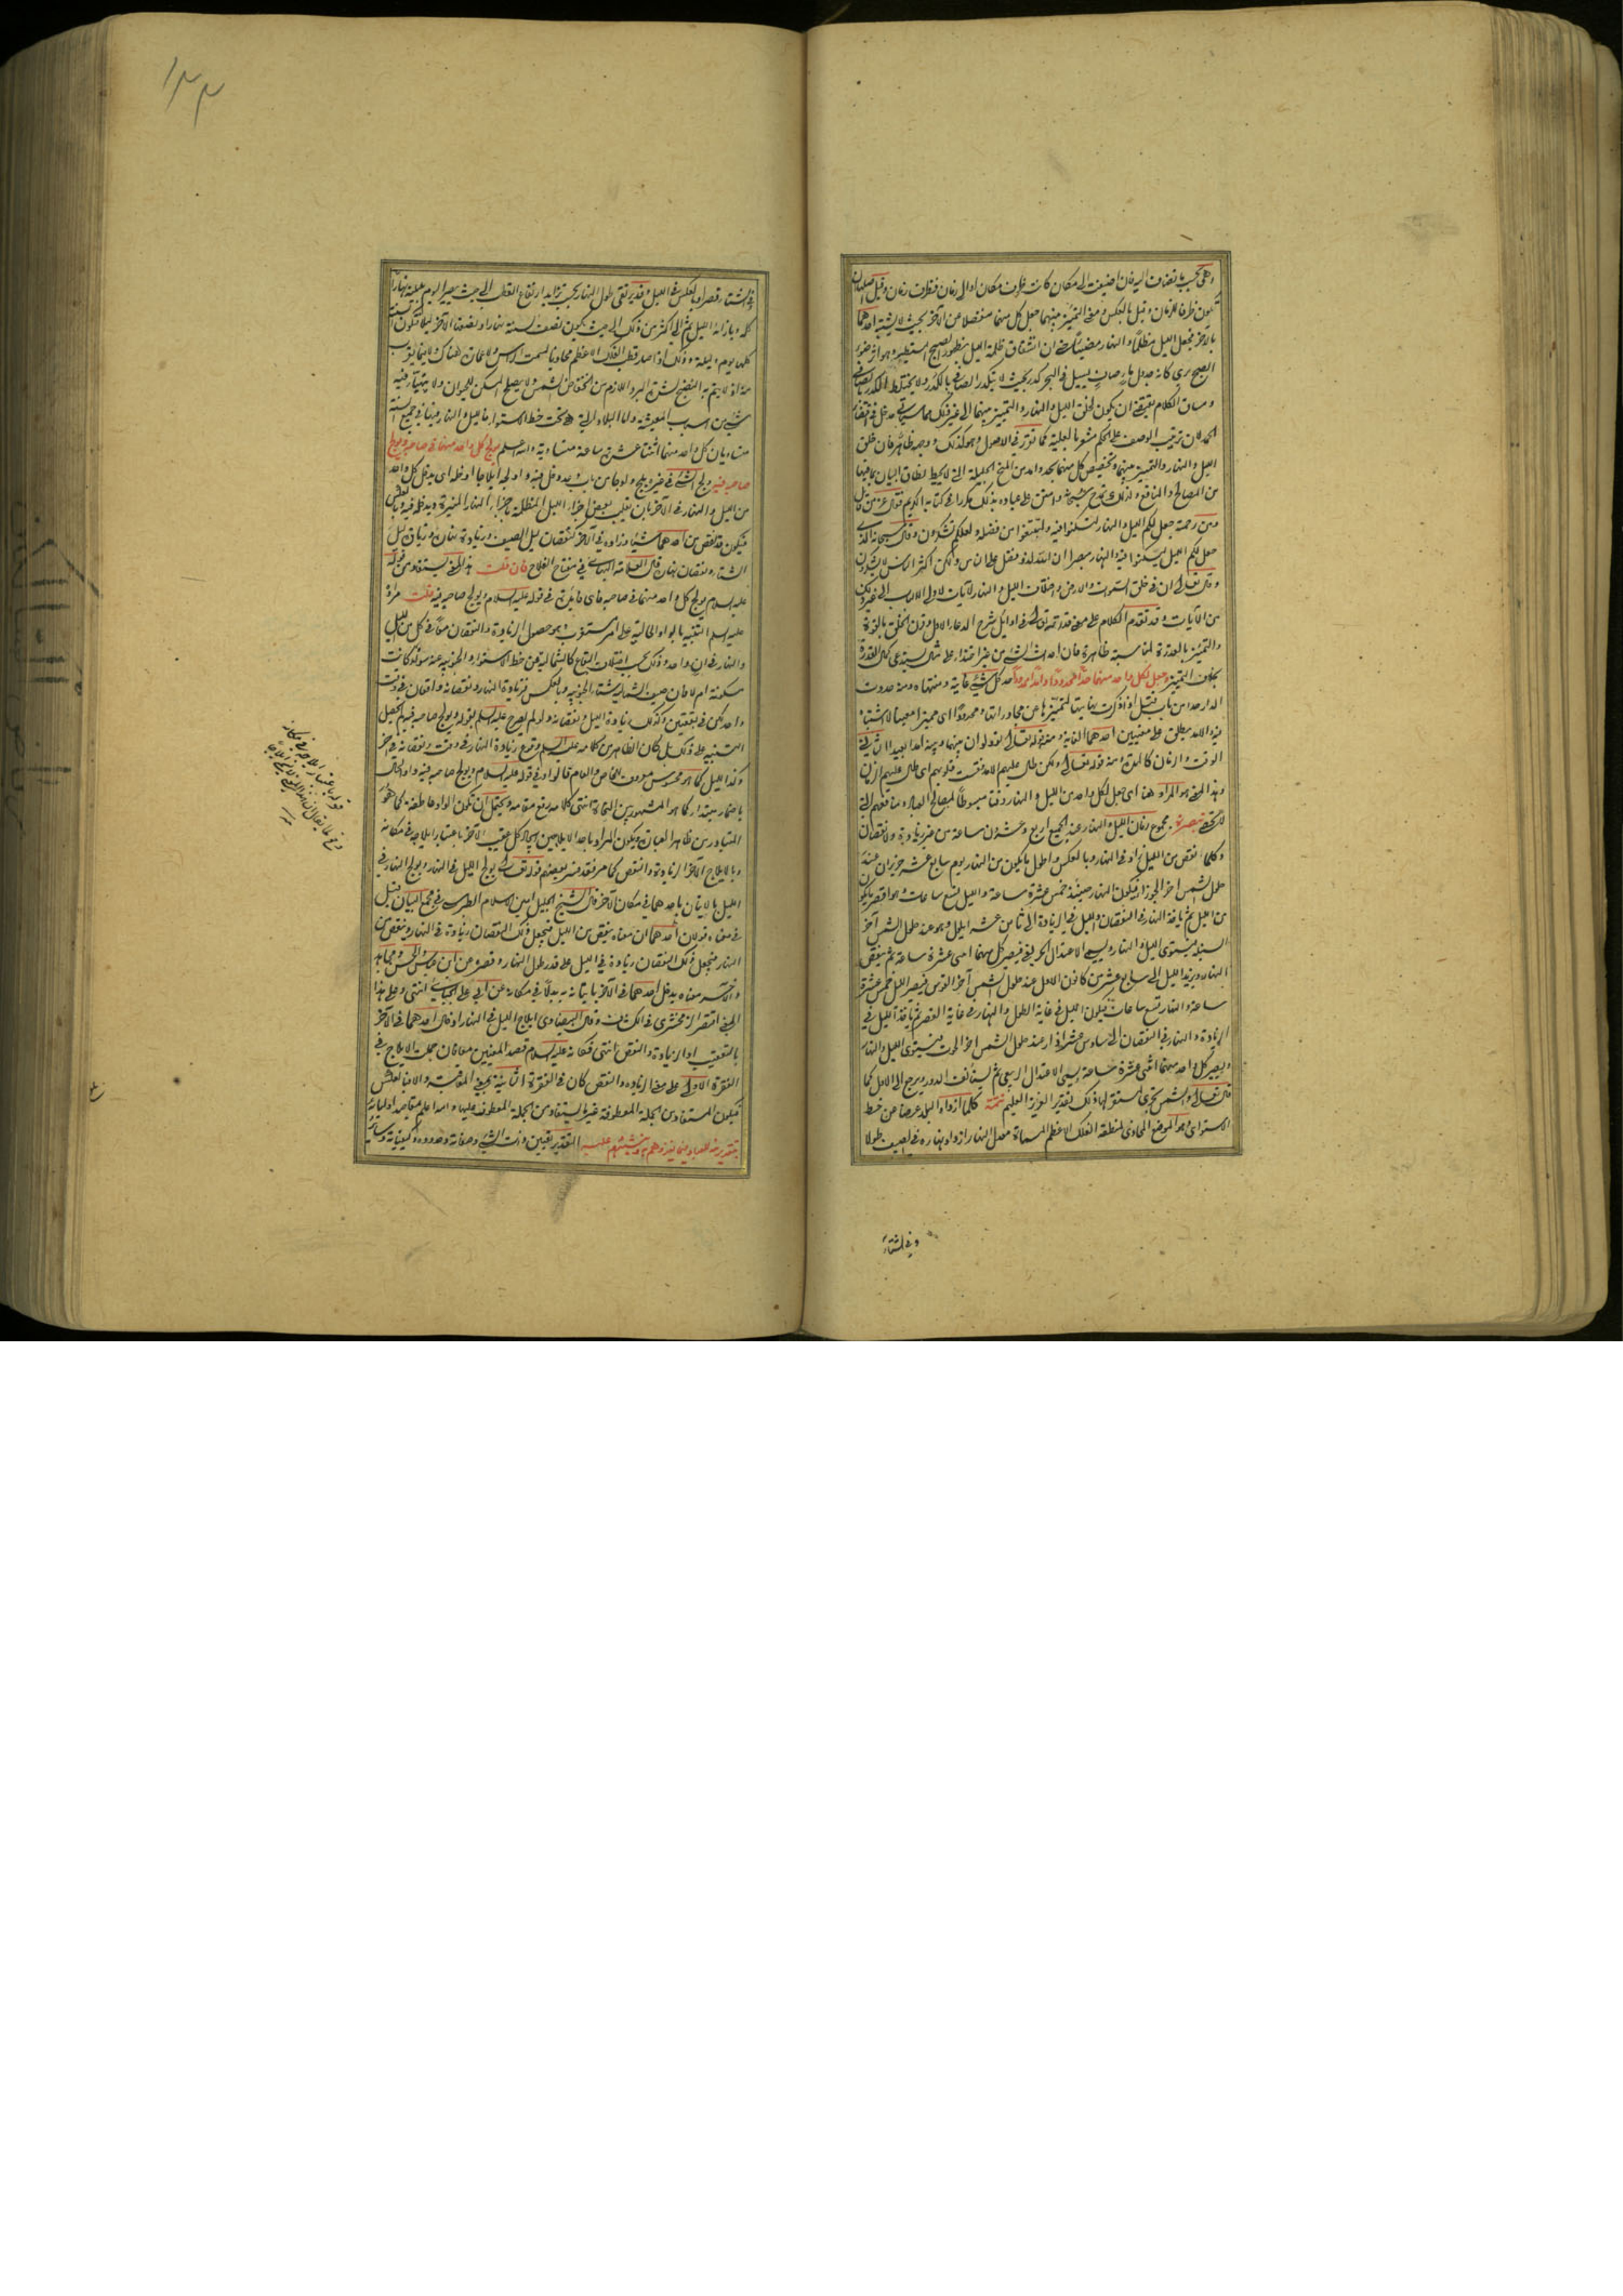 وهي بحسب ما تضاف اليه فان اضيفت الى مكان كانت ظرف مكان او الى زمان فظرف زمان وقيل اصلها ان
تكون ظرفا للزمان وقيل بالعكس ومعنى التمييز بينهما جعل كل منهما منفصلا عن الآخر بحيث لا يشتبه احدهما
بالآخر فجعل الليل مظلما والنهار مضيئا
الصبح يرى كانه جدول ماء صاف يسيل في البحر كدر بحيث لا يتكدر الصافي بالكدر ولا يختلط الكدر بالصافي
ومساق الكلام يقتضي ان يكون لخلق الليل والنهار والتمييز بينهما الى غير ذلك مما سيأتي مدخل في اقتضاء
الحمد لان ترتيب الوصف على الحكم مشعر بالعلية كما تقرر في الاصول وهو كذلك ووجهه ظاهر فان خلق
الليل والنهار والتمييز بينهما وتخصيص كل منهما بحد واحد من المنح الجليلة التي لا يحيط نطاق البيان بما فيها
من المصالح والمنافع ولذلك تمدح سبحانه وامتن على عباده بذلك مكررا في كتابه الكريم فقال عز من قائل
ومن رحمته جعل لكم الليل والنهار لتسكنوا فيه ولتبتغوا من فضله ولعلكم تشكرون وقال سبحانه الله الذي
جعل لكم الليل لتسكنوا فيه والنهار مبصرا ان الله لذو فضل على الناس ولكن اكثر الناس لا يشكرون
وقال تعالى ان في خلق السموات والارض واختلاف الليل والنهار لآيات لاولي الالباب الى غير ذلك
من الآيات وقد تقدم الكلام على معنى قدرته تعالى في اوائل شرح الدعاء الاول وقرن الخلق بالقوة
والتمييز بالقدرة لمناسبة ظاهرة فان احداث الشيء من غير احتذاء على مثال يستدعي كمال القدرة
بخلاف التمييز وجعل لكل واحد منهما حدا محدودا وامدا ممدودا حد كل شيء غايته ومنتهاه ومنه حددت
الدار حدا من باب قتل اذا ذكرت نهايتها لتمييزها عن مجاوراتها ومحدودا اي مميزا معينا لا اشتباه
فيه والامد يطلق على معنيين احدهما الغاية ومنه قوله تعالى تود لو ان بينها وبينه امدا بعيدا الثاني
الوقت والزمان كالمدة ومنه قوله تعالى ولكن طال عليهم الامد فقست قلوبهم اي طال عليهم الزمان
وهذا المعنى هو المراد هنا اي جعل لكل واحد من الليل والنهار وقتا مبسوطا لمصالح العباد ومنافعهم التي
لا تحصى تبصرة مجموع زمان الليل والنهار عند الجميع اربع وعشرون ساعة من غير زيادة ولا نقصان
وكلما نقص من الليل زاد في النهار وبالعكس واطول ما يكون من النهار يوم سابع عشر حزيران عند
حلول الشمس آخر الجوزاء فيكون النهار حينئذ خمس عشرة ساعة والليل تسع ساعات وهو اقصر ما يكون
من الليل ثم يأخذ النهار في النقصان والليل في الزيادة الى ثامن عشر ايلول وهو عند حلول الشمس آخر
السنبلة فيستوي الليل والنهار ويسمى الاعتدال الخريفي فيصير كل منهما اثنى عشرة ساعة ثم ينقص
النهار ويزيد الليل الى سابع عشر من كانون الاول عند حلول الشمس آخر القوس فيصير الليل خمس عشرة
ساعة والنهار تسع ساعات فيكون الليل في غاية الطول والنهار في غاية القصر ثم يأخذ الليل في
الزيادة والنهار في النقصان الى سادس عشر اذار عند حلول الشمس آخر الحوت فيستوي الليل والنهار
ويصير كل واحد منهما اثنى عشرة ساعة ويسمى الاعتدال الربيعي ثم يستأنف الدور ويرجع الى الاول كما
قال تعالى والشمس تجري لمستقر لها ذلك تقدير العزيز العليم تتمة كلما ازداد البلد عرضا عن خط
الاستواء وهو الموضع المحاذي لمنطقة الفلك الاعظم المسماة معدل النهار ازداد نهاره في الصيف طولا
وفي الشتاء
١٣٣
وفي الشتاء قصرا وبالعكس في الليل وقد يرتقي طول النهار بحسب تزايد ارتفاع القطب الى حيث يصير اليوم بليلته نهارا
كله وبازائه الليل ثم الى اكثر من ذلك الى حيث يكون نصف السنة نهارا ونصف الآخر ليلا فتكون السنة
كلها يوم وليلة وذلك اذا صار قطب الفلك الاعظم محاذيا لسمت الرأس ولا عمارة هناك ولا فيما يقرب
منه اذ لا يتم به النضج لشدة البرد اللازم من انخفاض الشمس ولا يصلح المسكن للحيوان ولا يتهيأ فيه
شيء من اسباب المعيشة واما البلاد التي تحت خط الاستواء فالليل والنهار فيها في جميع السنة
متساويان كل واحد منهما اثنتا عشرة ساعة متساوية والله اعلم يولج كل واحد منهما في صاحبه ويولج
صاحبه فيه ولج الشيء في غيره يلج ولوجا من باب وعد دخل فيه واولجه ايلاجا ادخله اي يدخل كل واحد
من الليل والنهار في الآخر بان يغلب بعض اجزاء الليل المظلمة باجزاء النهار المنيرة ويدخله فيه وبالعكس
فيكون قد نقص من احدهما شيئا وزاده في الآخر كنقصان ليل الصيف وزيادة نهاره وزيادة ليل
الشتاء ونقصان نهاره قال العلامة البهائي في مفتاح الفلاح فان قلت هذا المعنى يستفاد من قوله
عليه السلام يولج كل واحد منهما في صاحبه فاي فائدة في قوله عليه السلام ويولج صاحبه فيه قلت مراده
عليه السلم التنبيه بالواو الحالية على امر مستغرب وهو حصول الزيادة والنقصان معا في كل من الليل
والنهار في آن واحد وذلك بحسب اختلاف البقاع كالشمالية عن خط الاستواء والجنوبية عنه سواء كانت
مسكونة ام لا فان صيف الشمالية شتاء الجنوبية وبالعكس فزيادة النهار ونقصانه واقعان في وقت
واحد لكن في بقعتين وكذلك زيادة الليل ونقصانه ولو لم يصرح عليه السلم بقوله ويولج صاحبه فيه لم يحصل
التنبيه على ذلك بل كان الظاهر من كلامه عليه السلم وقوع زيادة النهار في وقت ونقصانه في آخر
وكذا الليل كما هو محسوس معروف للخاص والعام فالواو في قوله عليه السلام ويولج صاحبه فيه واو الحال
باضمار مبتدأ كما هو المشهور بين النحاة انتهى كلامه رفع مقامه ويحتمل ان تكون الواو عاطفة كما هو
المتبادر من ظاهر العبارة ويكون المراد باحد الايلاجين ايجاد كل عقيب الآخر باعتبار ايلاجه في مكانه
وبالايلاج الآخر الزيادة والنقص كما مر فقد فسر بعضهم قوله تعالى يولج الليل في النهار ويولج النهار في
الليل بالاتيان باحدهما في مكان الآخر قال الشيخ الجليل امين الاسلام الطبرسي في مجمع البيان قيل
في معناه قولان احدهما ان معناه ينقص من الليل فيجعل ذلك النقصان زيادة في النهار وينقص من
النهار فيجعل ذلك النقصان زيادة في الليل على قدر طول النهار وقصره عن ابن عباس والحسن ومجاهد
والآخر معناه يدخل احدهما في الآخر باتيانه به بدلا في مكانه عن ابي علي الجبائي انتهى وعلى هذا
المعنى اقتصر الزمخشري في الكشاف وقال البيضاوي ايلاج الليل في النهار ادخال احدهما في الآخر
بالتعقيب او الزيادة والنقص انتهى فكأنه عليه السلام قصد المعنيين معا فان جعلت الايلاج في
الفقرة الاولى على معنى الزيادة والنقص كان في الفقرة الثانية بمعنى المعاقبة والا فبالعكس
فيكون المستفاد من الجملة المعطوفة غير المستفاد من الجملة المعطوف عليها والله اعلم بمقاصد اوليائه
بتقدير منه للعباد فيما يغذوهم به وينشئهم عليه التقدير تعيين ذات الشيء وصفاته وحدوده وكيفياته وسائر
قوله باعتبار ايلاجه في مكانه